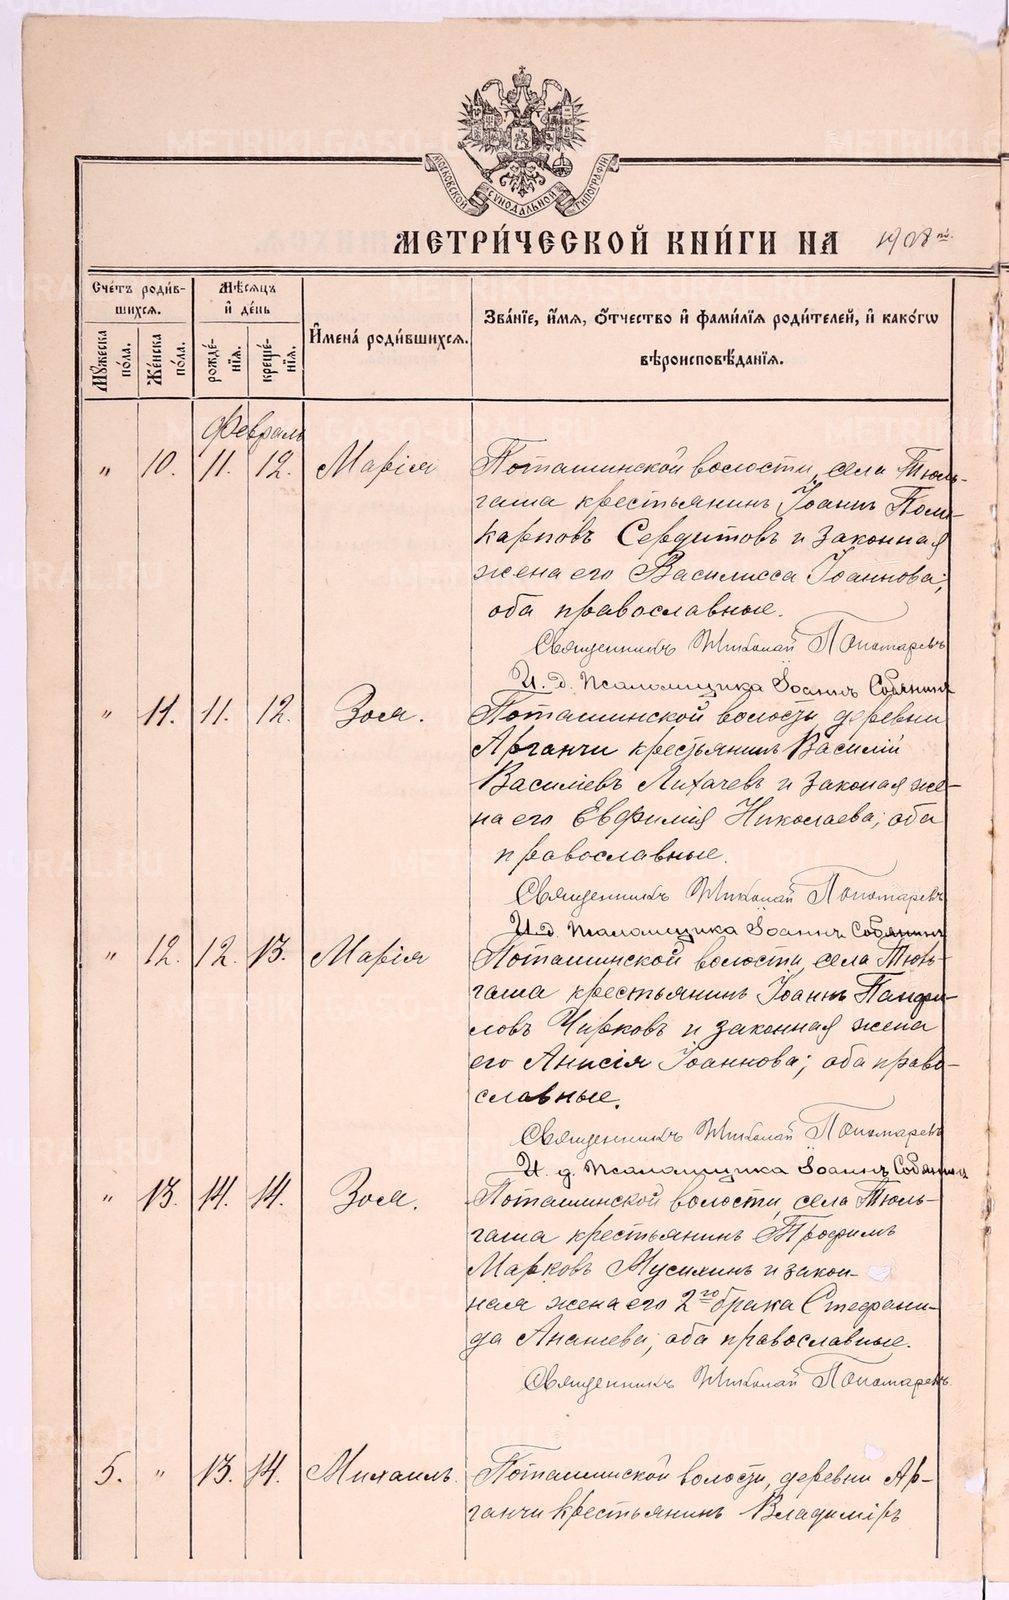 МОСКОВСКОЙ СѴНОДАЛЬНОЙ ТИПОГРАФІИ
МЕТРИ́ЧЕСКОЙ КНИ́ГИ НА 1908 й.
Сче́тъ роди́в-
шихся.
Мѣ́сяцъ
и҆ де́нь
Мꙋ́жеска по́ла.
Же́нска по́ла.
рожде́-
нїѧ.
креще́-
нїѧ.
И҆мена̀ роди́вшихсѧ.
Зва́нїе, и҆́мѧ, ѻ҆́тчество и҆ фами́лїѧ роди́телей, и҆ како́гѡ
вѣроисповѣ́данїѧ.
Февраль
„ 10. 11. 12. Марія
Поташинской волости, села Тюль-
гаша крестьянинъ Іоаннъ Поли-
карповъ Сердитовъ и законная
жена его Василисса Іоаннова;
оба православные.
Священникъ Николай Пономаревъ
И. д. псаломщика Іоаннъ Собянинъ
„ 11. 11. 12. Зоя.
Поташинской волости, деревни
Арганчи крестьянинъ Василій
Василіевъ Лихачевъ и законая же-
на его Евфимія Николаева; оба
православные.
Священникъ Николай Пономаревъ
И. д. псаломщика Іоаннъ Собянинъ
„ 12. 12. 13. Марія
Поташинской волости, села Тюль-
гаша крестьянинъ Іоаннъ Панфи-
ловъ Чирковъ и законная жена
его Анисія Іоаннова; оба право-
славные.
Священникъ Николай Пономаревъ
И. д. псаломщика Іоаннъ Собянинъ
„ 13. 14. 14. Зоя.
Поташинской волости, села Тюль-
гаша крестьянинъ Трофимъ
Марковъ Мусихинъ и закон-
ная жена его 2го брака Стефани-
да Ананіева; оба православные.
Священникъ Николай Пономаревъ
5. „ 13. 14. Михаилъ.
Поташинской волости, деревни Ар-
ганчи крестьянинъ Владиміръ